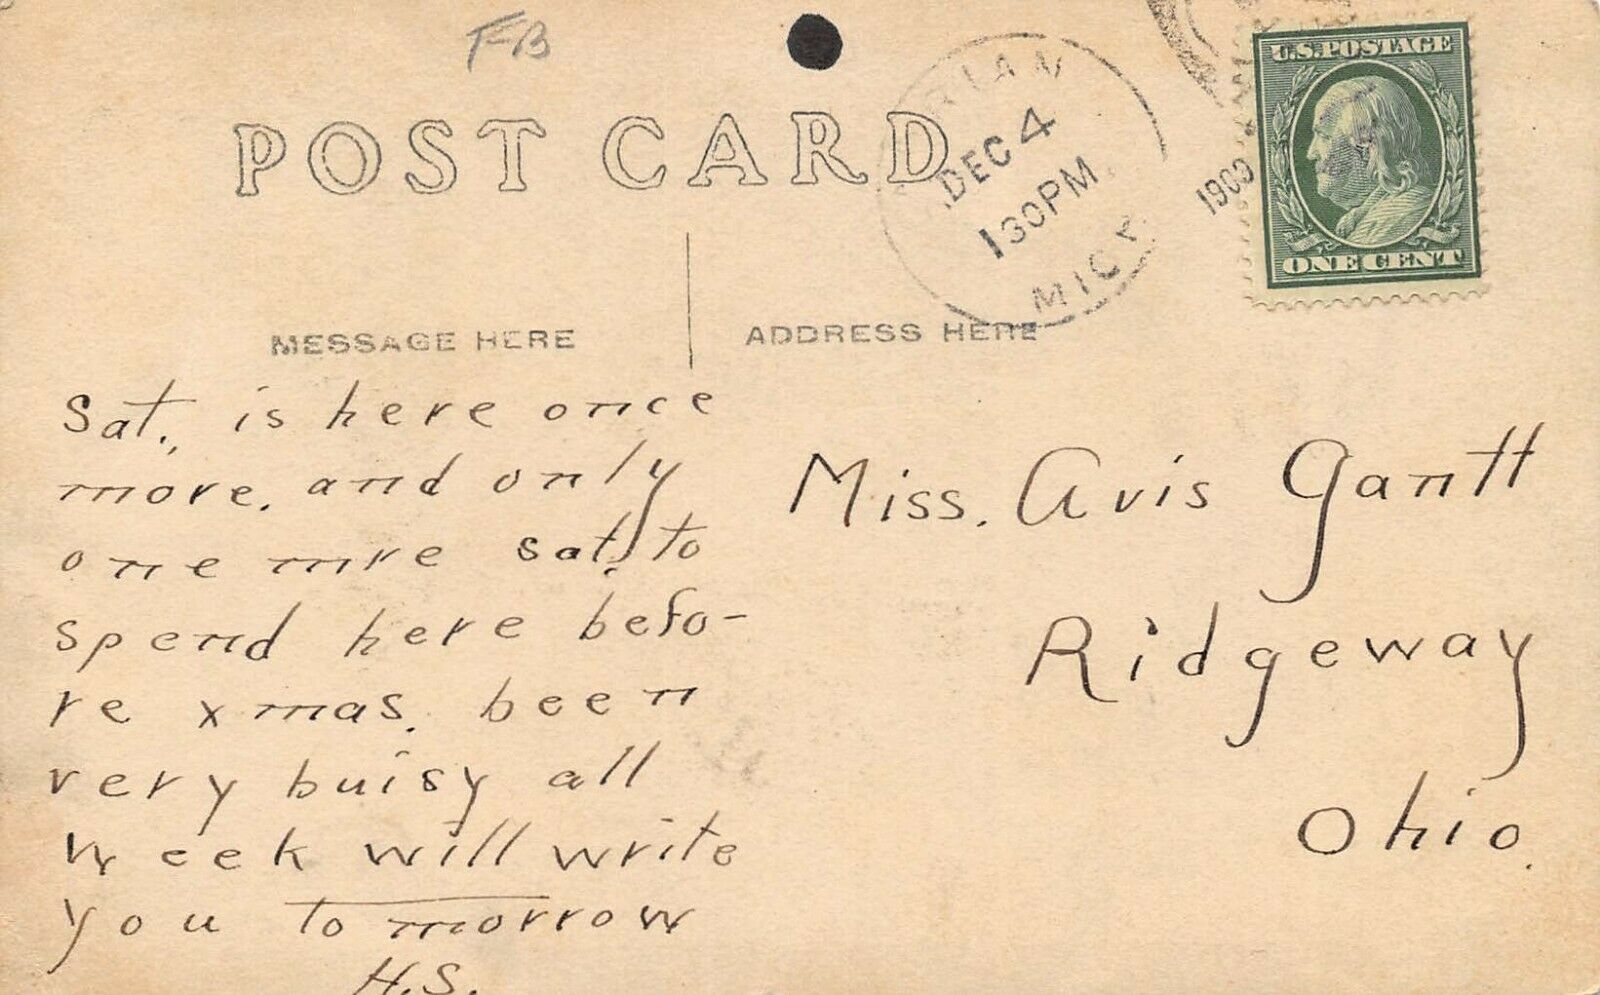 FB
POST CARD
RIAN
DEC 4
130PM
MICH
1909
U.S. POSTAGE
ONE CENT
MESSAGE HERE
ADDRESS HERE
Sat., is here once
more. and only
one mre sat. to
spend here befo-
re xmas. been
very buisy all
week will write
you to morrow
H.S.
Miss. Avis Gantt
Ridgeway
Ohio.